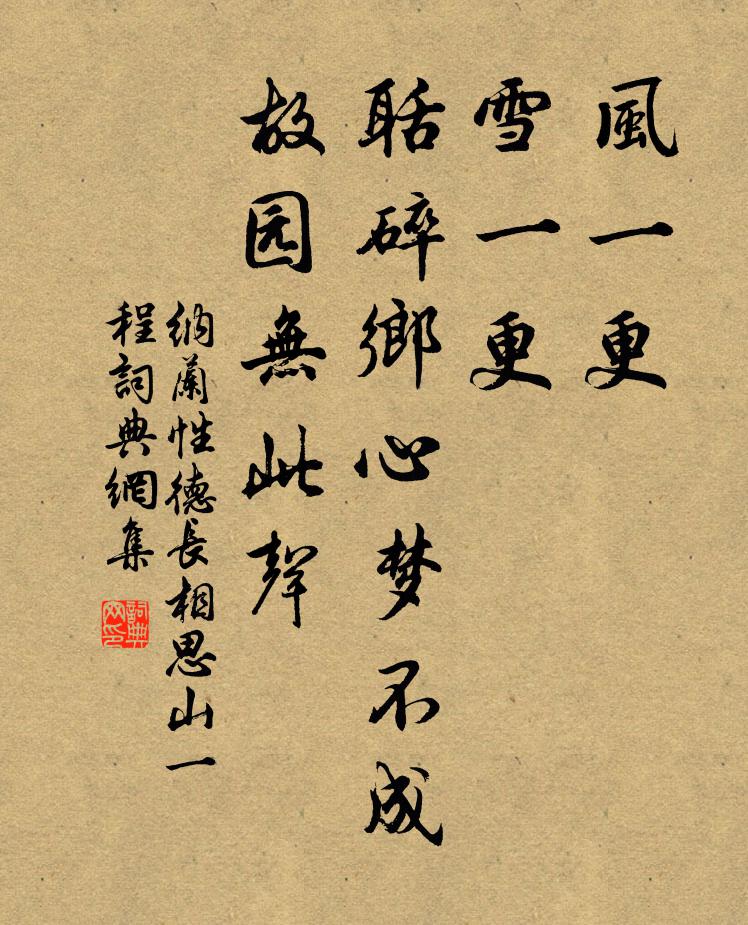 風一更
雪一更
聒碎鄉心梦不成
故园無此聲
納蘭性德長相思山一
程詞典網集
詞典网印